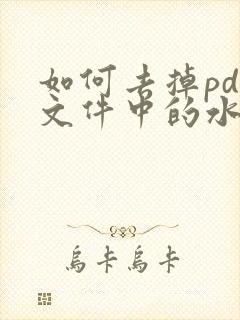 如何去掉pd
文件中的水
烏卡烏卡